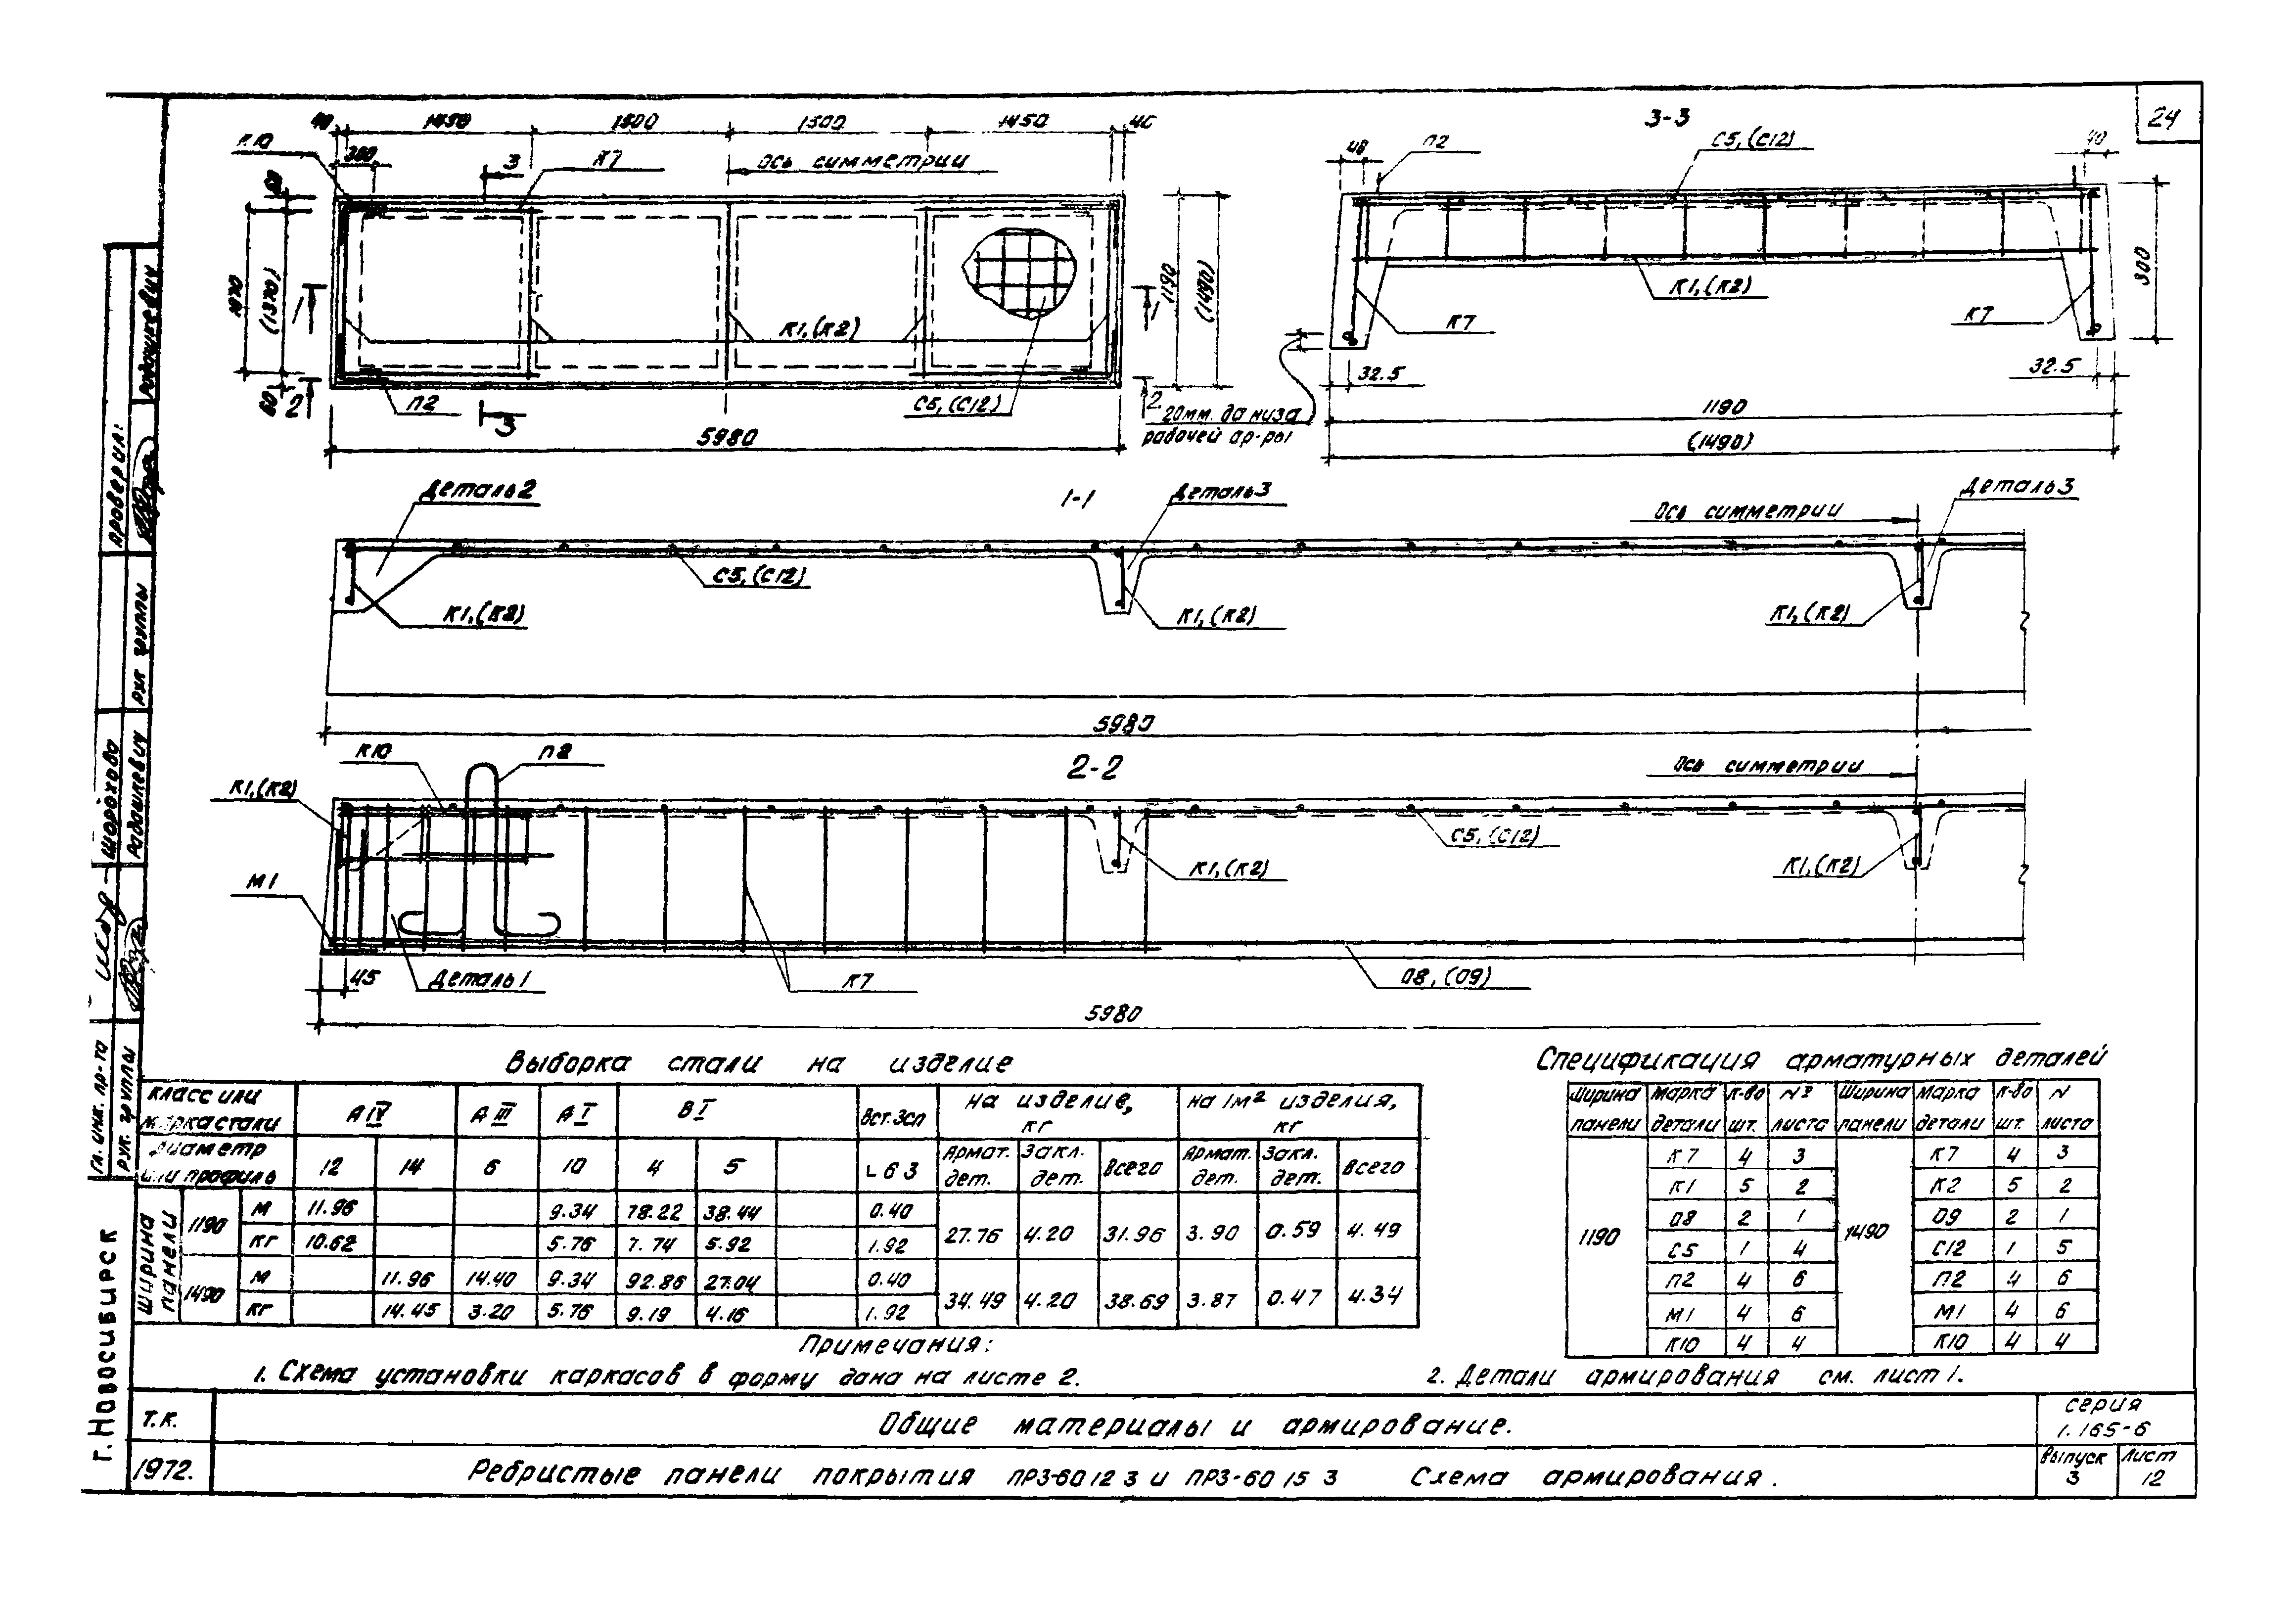 24
40 1450 1500 1500 1450 40
К10 380 3 К7 Ось симметрии
60
1070
(1370)
60
1 1
2 2
К1,(К2)
1190
(1490)
П2 3 С5,(С12)
5980
3-3
40 П2 С5,(С12) 40
К1,(К2)
К7 К7
300
32.5 32.5
20мм. до низа
рабочей ар-ры
1190
(1490)
Деталь2 1-1 Деталь3 Ось симметрии Деталь3
С5,(С12)
К1,(К2) К1,(К2) К1,(К2)
5980
К10 П2 2-2 Ось симметрии
К1,(К2)
С5,(С12)
М1 К1,(К2) К1,(К2)
45 Деталь1 К7 О8,(О9)
5980
Выборка стали на изделие
Класс или марка стали А IV А III А I В I Вст.3сп На изделие, кг На 1м² изделия, кг
Диаметр или профиль 12 14 6 10 4 5 L63 Армат. дет. Закл. дет. Всего Армат. дет. Закл. дет. Всего
Ширина панели
1190 М 11.96 9.34 78.22 38.44 0.40
кг 10.62 5.76 7.74 5.92 1.92 27.76 4.20 31.96 3.90 0.59 4.49
1490 М 11.96 14.40 9.34 92.86 27.04 0.40
кг 14.45 3.20 5.76 9.19 4.16 1.92 34.49 4.20 38.69 3.87 0.47 4.34
Спецификация арматурных деталей
Ширина панели Марка детали К-во шт. № листа Ширина панели Марка детали К-во шт. N листа
1190 1490
К7 4 3 К7 4 3
К1 5 2 К2 5 2
О8 2 1 О9 2 1
С5 1 4 С12 1 5
П2 4 6 П2 4 6
М1 4 6 М1 4 6
К10 4 4 К10 4 4
Примечания:
1. Схема установки каркасов в форму дана на листе 2.
2. Детали армирования см. лист 1.
Т.К.
1972.
Общие материалы и армирование.
Ребристые панели покрытия ПР3-60 12 3 и ПР3-60 15 3 Схема армирования.
серия
1.165-6
Выпуск
3
Лист
12
г. Новосибирск
Гл. инж. пр-та Шорохова
Рук. группы Радашкевич
Рук группы
Проверил: Радашкевич